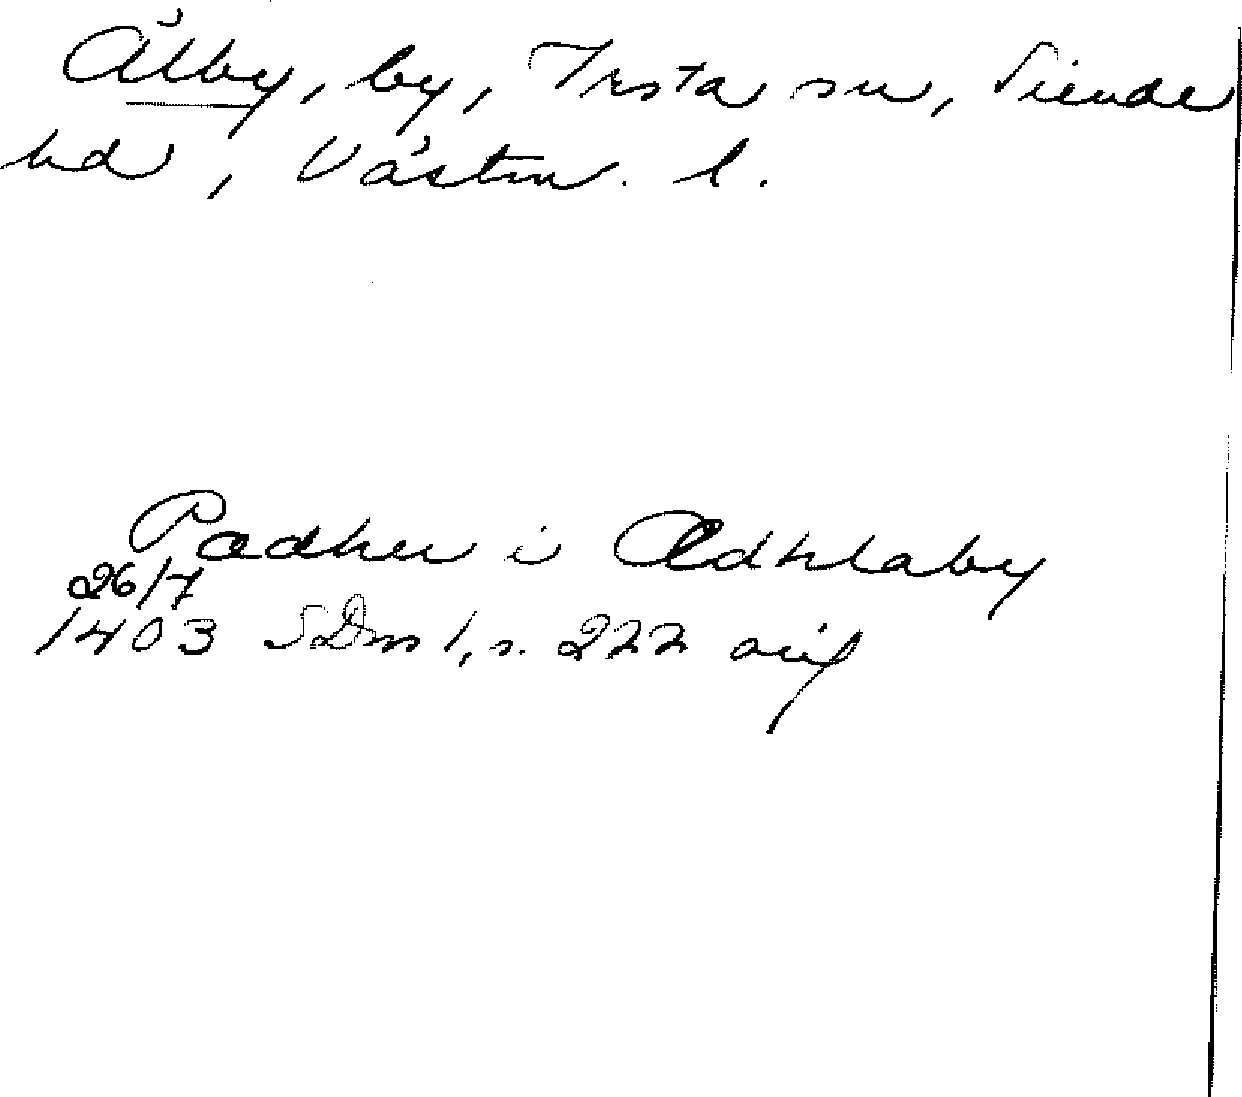 Älby, by, Irsta sn, Siende
hd, Västm. l.
Pædher i Ædhlaby
26/7
1403 SDns 1, s. 222 avs